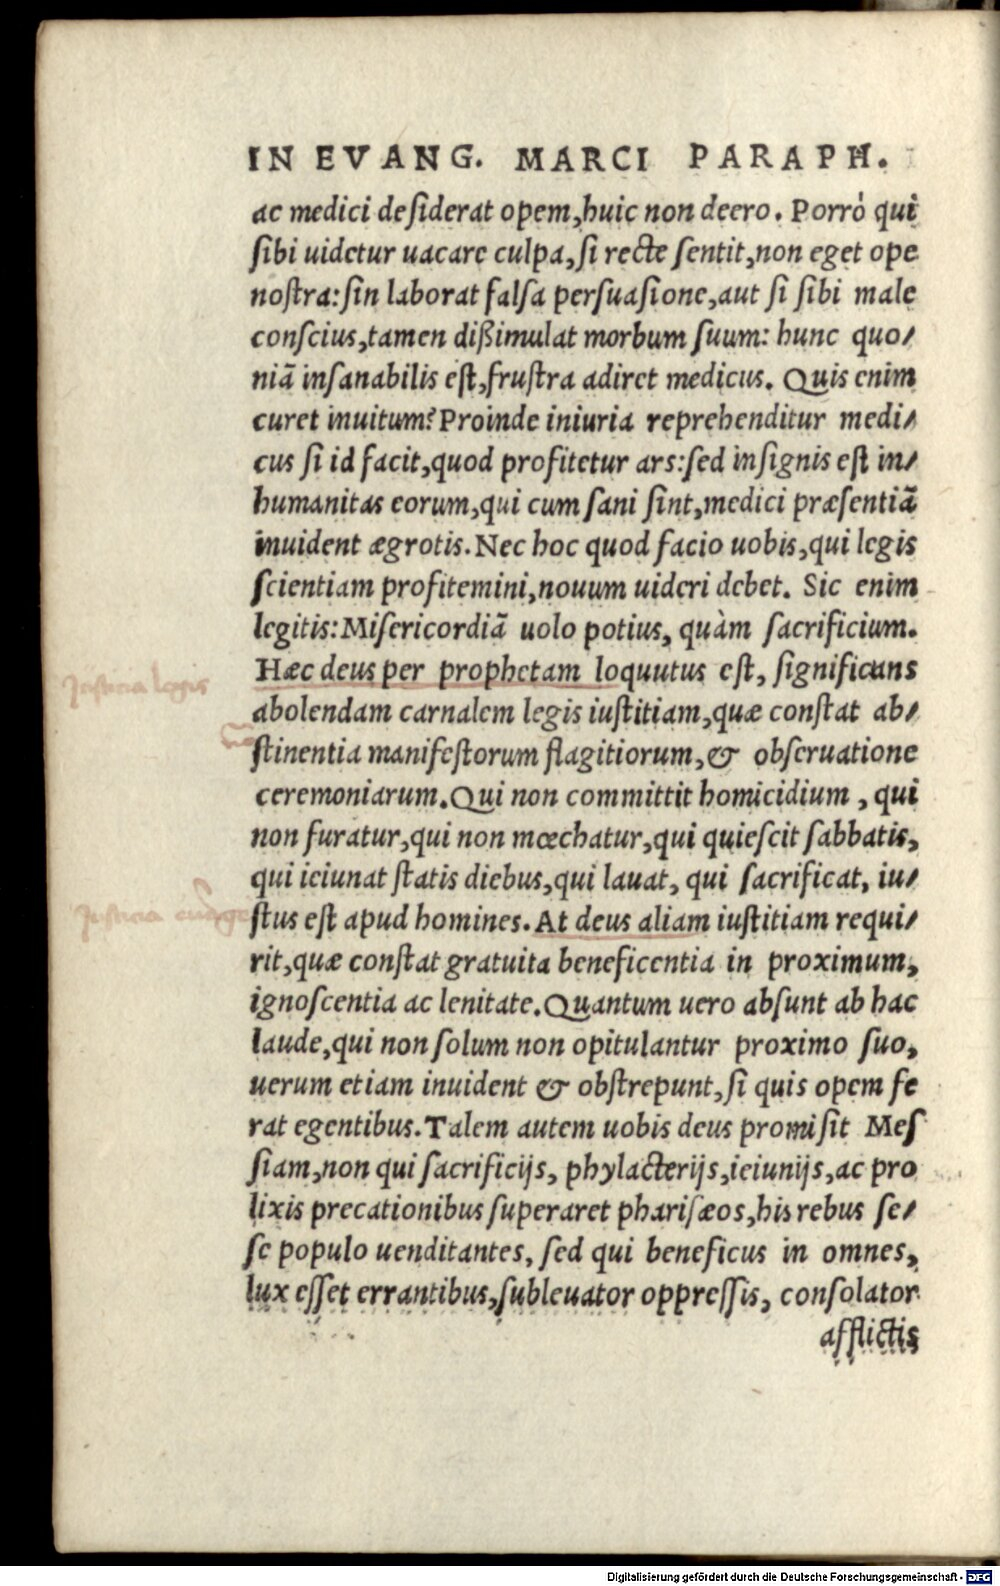 IN EVANG. MARCI PARAPH.
ac medici desiderat opem, huic non deero. Porrò qui
sibi uidetur uacare culpa, si recte sentit, non eget ope
nostra: sin laborat falsa persuasione, aut si sibi male
conscius, tamen dißimulat morbum suum: hunc quo/
niã insanabilis est, frustra adiret medicus. Quis enim
curet inuitum? Proinde iniuria reprehenditur medi/
cus si id facit, quod profitetur ars: sed insignis est in/
humanitas eorum, qui cum sani sint, medici præsentiã
inuident ægrotis. Nec hoc quod facio uobis, qui legis
scientiam profitemini, nouum uideri debet. Sic enim
legitis: Misericordiã uolo potius, quàm sacrificium.
Hæc deus per prophetam loquutus est, significans
Justicia legis
abolendam carnalem legis iustitiam, quæ constat ab/
stinentia manifestorum flagitiorum, & obseruatione
ceremoniarum. Qui non committit homicidium, qui
non furatur, qui non mœchatur, qui quiescit sabbatis,
qui ieiunat statis diebus, qui lauat, qui sacrificat, iu/
Justicia
stus est apud homines. At deus aliam iustitiam requi/
rit, quæ constat gratuita beneficentia in proximum,
ignoscentia ac lenitate. Quantum uero absunt ab hac
laude, qui non solum non opitulantur proximo suo,
uerum etiam inuident & obstrepunt, si quis opem fe
rat egentibus. Talem autem uobis deus promisit Mes
siam, non qui sacrificijs, phylacterijs, ieiunijs, ac pro
lixis precationibus superaret pharisæos, his rebus se/
se populo uenditantes, sed qui beneficus in omnes,
lux esset errantibus, subleuator oppressis, consolator
afflictis
Digitalisierung gefördert durch die Deutsche Forschungsgemeinschaft - DFG